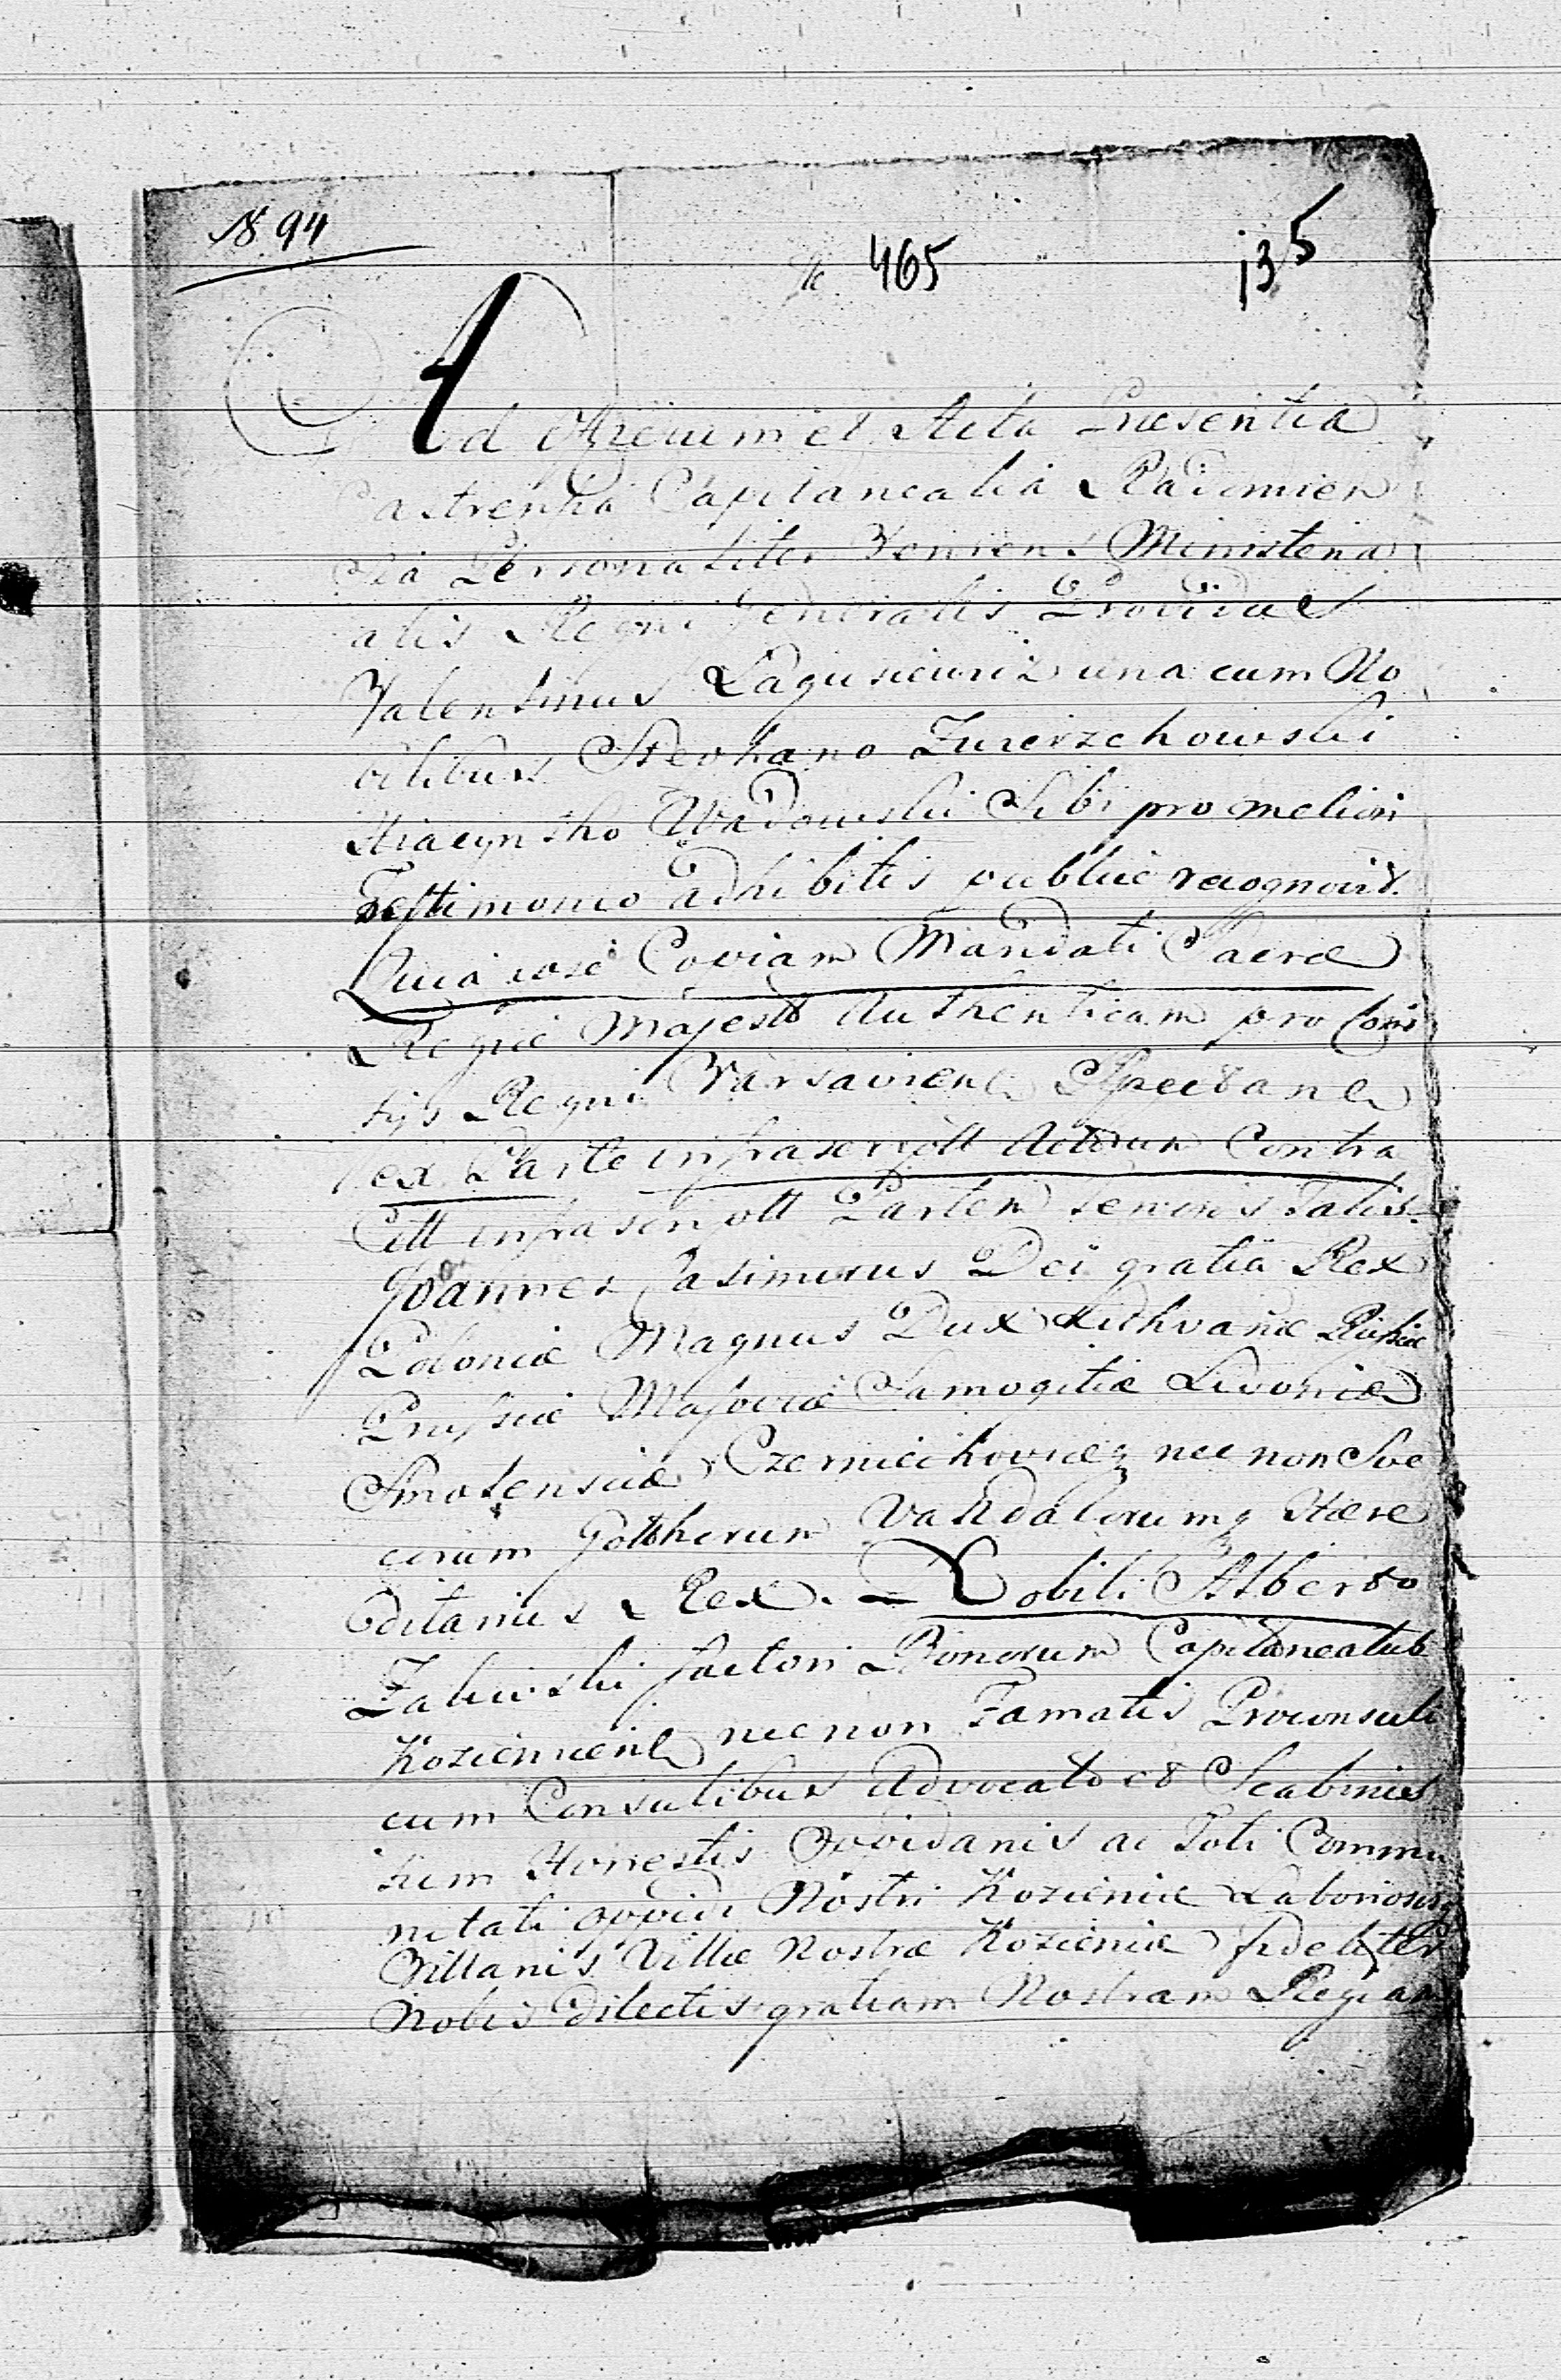 № 94
№ 465
135
Ad Officium et Acta Præsentia
Castrensia Capitanealia Radomien
sia Personaliter Veniens Ministeria
alis Regni Generalis Providus
Valentinus una cum No
bilibus Stephano Zwierzchowski
Hiacyntho Wadowski Sibi pro meliori
Testimonio adhibitis publice recognovit
Quia ipse Copiam Mandati Sacræ
Regiæ Majestt Authenticam pro Comi
tijs Regni Varsaviens
ex Parte infrascriptt Actorum Contra
Citt infrascriptt Partem Seriei Talis.
Joannes Casimirus Dei gratia Rex
Poloniæ Magnus Dux Lithvaniæ Rufsiæ
Prufsiæ Masoviæ Samogitiæ Livoniæ
Smolensciæ Czerniechoviæq nec non Sve
corum Gotthorum Vandalorumq Hære
ditarius Rex. Nobili Alberto
Zaliwski factori Bonorum Capitaneatus
Koziennicens necnon Famatis Proconsuli
cum Consulibus Advocato et Scabinis
tum Honestis Oppidanis ac Toti Commu
nitati oppidi Nostri Kozienice Laboriosisq
Villanis Villæ Nostræ Kozienice fideliter
Nobis Dilectis gratiam Nostram Regiam